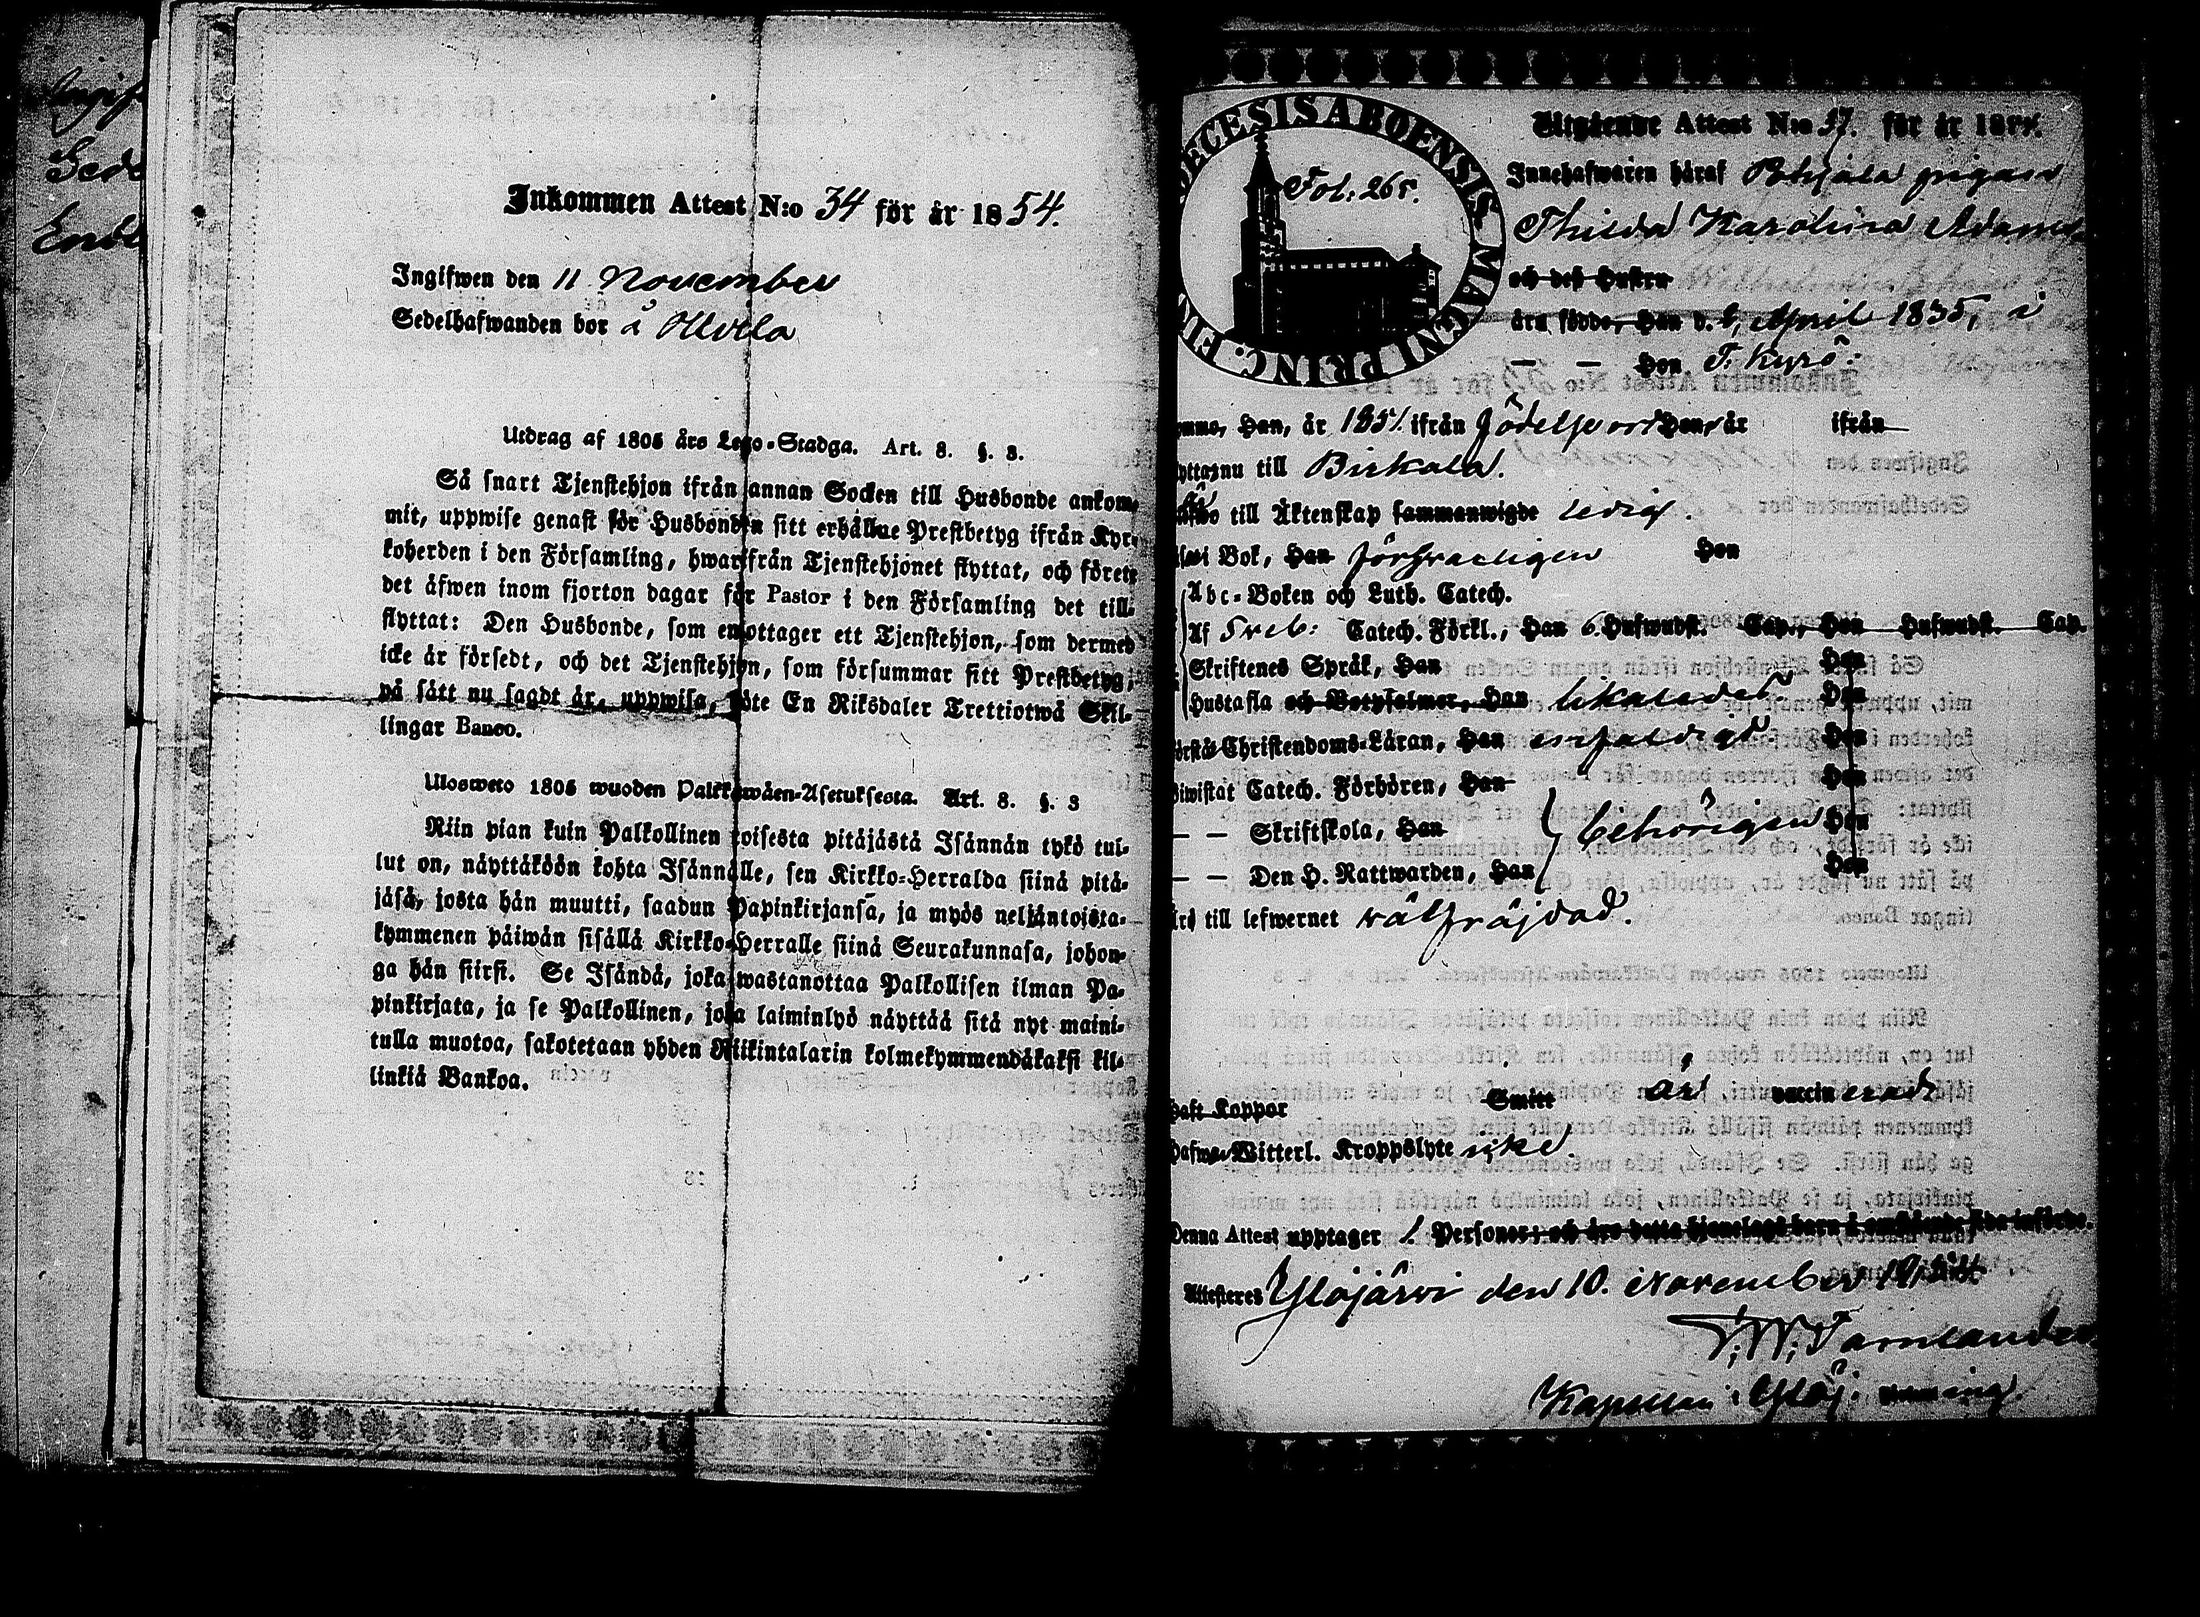 Inkommen Attest N:o 34 för år 1854.
Ingifwen den 11 November
Sedelhafwanden bor å Ollola
Utdrag af 1805 års Lego-Stadga. Art. 8. §. 3.
Så snart Tjenstehjon ifrån annan Socken till Husbonde ankom-
mit, uppwise genast för Husbonden sitt erhållne Prestbetyg ifrån Kyr-
koherden i den Församling, hwarifrån Tjenstehjonet flyttat, och förete
det äfwen inom fjorton dagar för Pastor i den Församling det till-
flyttat: Den Husbonde, som emottager ett Tjenstehjon, som dermed
icke är försedt, och det Tjenstehjon, som försummar sitt Prestbetyg,
på sätt nu sagdt är, uppwisa, böte En Riksdaler Trettiotwå Skil-
lingar Banco.
Ulosweto 1805 wuoden Palkkawäen-Asetuksesta. Art. 8. §. 3
Niin pian kuin Palkollinen toisesta pitäjästä Isännän tykö tul-
lut on, näyttäköön kohta Isännälle, sen Kirkko-Herralda siinä pitä-
jäsä, josta hän muutti, saadun Papinkirjansa, ja myös neljäntoista-
kymmenen päiwän sisällä Kirkko-Herralle siinä Seurakunnasa, johon-
ga hän siirsi. Se Isändä, joka wastanottaa Palkollisen ilman Pa-
pinkirjata, ja se Palkollinen, joka laiminlyö näyttää sitä nyt maini-
tulla muotoa, sakotetaan yhden Riikintalarin kolmekymmendäkaksi kil-
linkiä Bankoa.
DIECESIS ABOENSIS MAGNI PRINC. FIN
Fol: 265.
Utgående Attest N:o 37. för år 1854.
Innehafwaren häraf Pohjala pigan
Thilda Karolina Adams
och deß Hustru
äro födde, Han d. 6 April 1835, i
— — Hon T. Kyrö
Han, år 1851 ifrån födelse ort Hon, år ifrån
nu till Birkala.
till Äktenskap sammanwigde ledig.
i Bok, Han försvarligen Hon
Abc-Boken och Luth. Catech.
Af Sveb: Catech. Förkl., Han 6 Hufwudst. Cap., Hon Hufwudst. Cap.
Skriftenes Språk, Han Hon
Hustafla och Botpsalmer, Han likaledes Hon
Christendoms-Läran, Han enfaldigt Hon
Catech. Förhören, Han Hon
— — Skriftskola, Han behörigen Hon
— — Den H. Nattwarden, Han Hon
till lefwernet wälfräjdad.
haft Koppor Smitt är vaccinerad
Witterl. Kroppslyte icke.
Denna Attest upptager 1. Personer; och äro detta hjonelags barn å omstående sida införde.
Attesteres Ylöjärwi den 10. November 1854
F: W: Tamlander
Kapellan i Ylöj.